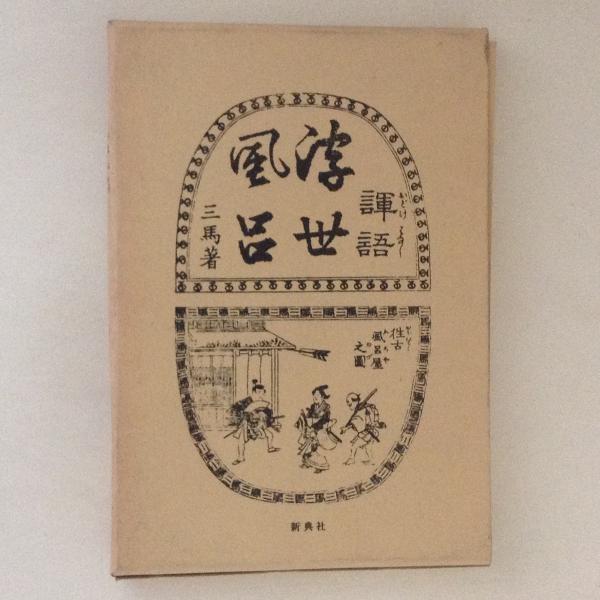 諢語
おどけばなし
浮世
風呂
三馬著
往古
風呂屋
ふろや
之圖
のづ
新典社